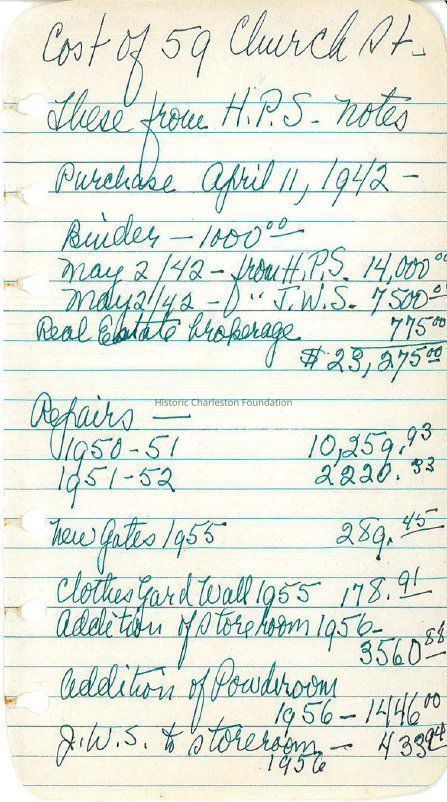 Cost of 59 Church St.
These from H.P.S. notes
Purchase April 11, 1942 -
Binder - 1000 00
May 2/42 - from H.P.S. 14,000 00
May 2/42 - " J.W.S. 7500 00
Real Estate brokerage 775 00
$ 23,275 00
Historic Charleston Foundation
Repairs -
1950-51 10,259.93
1951-52 2220.33
New Gates 1955 289.45
Clothes Yard Wall 1955 178.91
Addition of storeroom 1956 -
3560 88
Addition of Powderroom
1956 - 1446 00
J.W.S. to storeroom - 433 94
1956